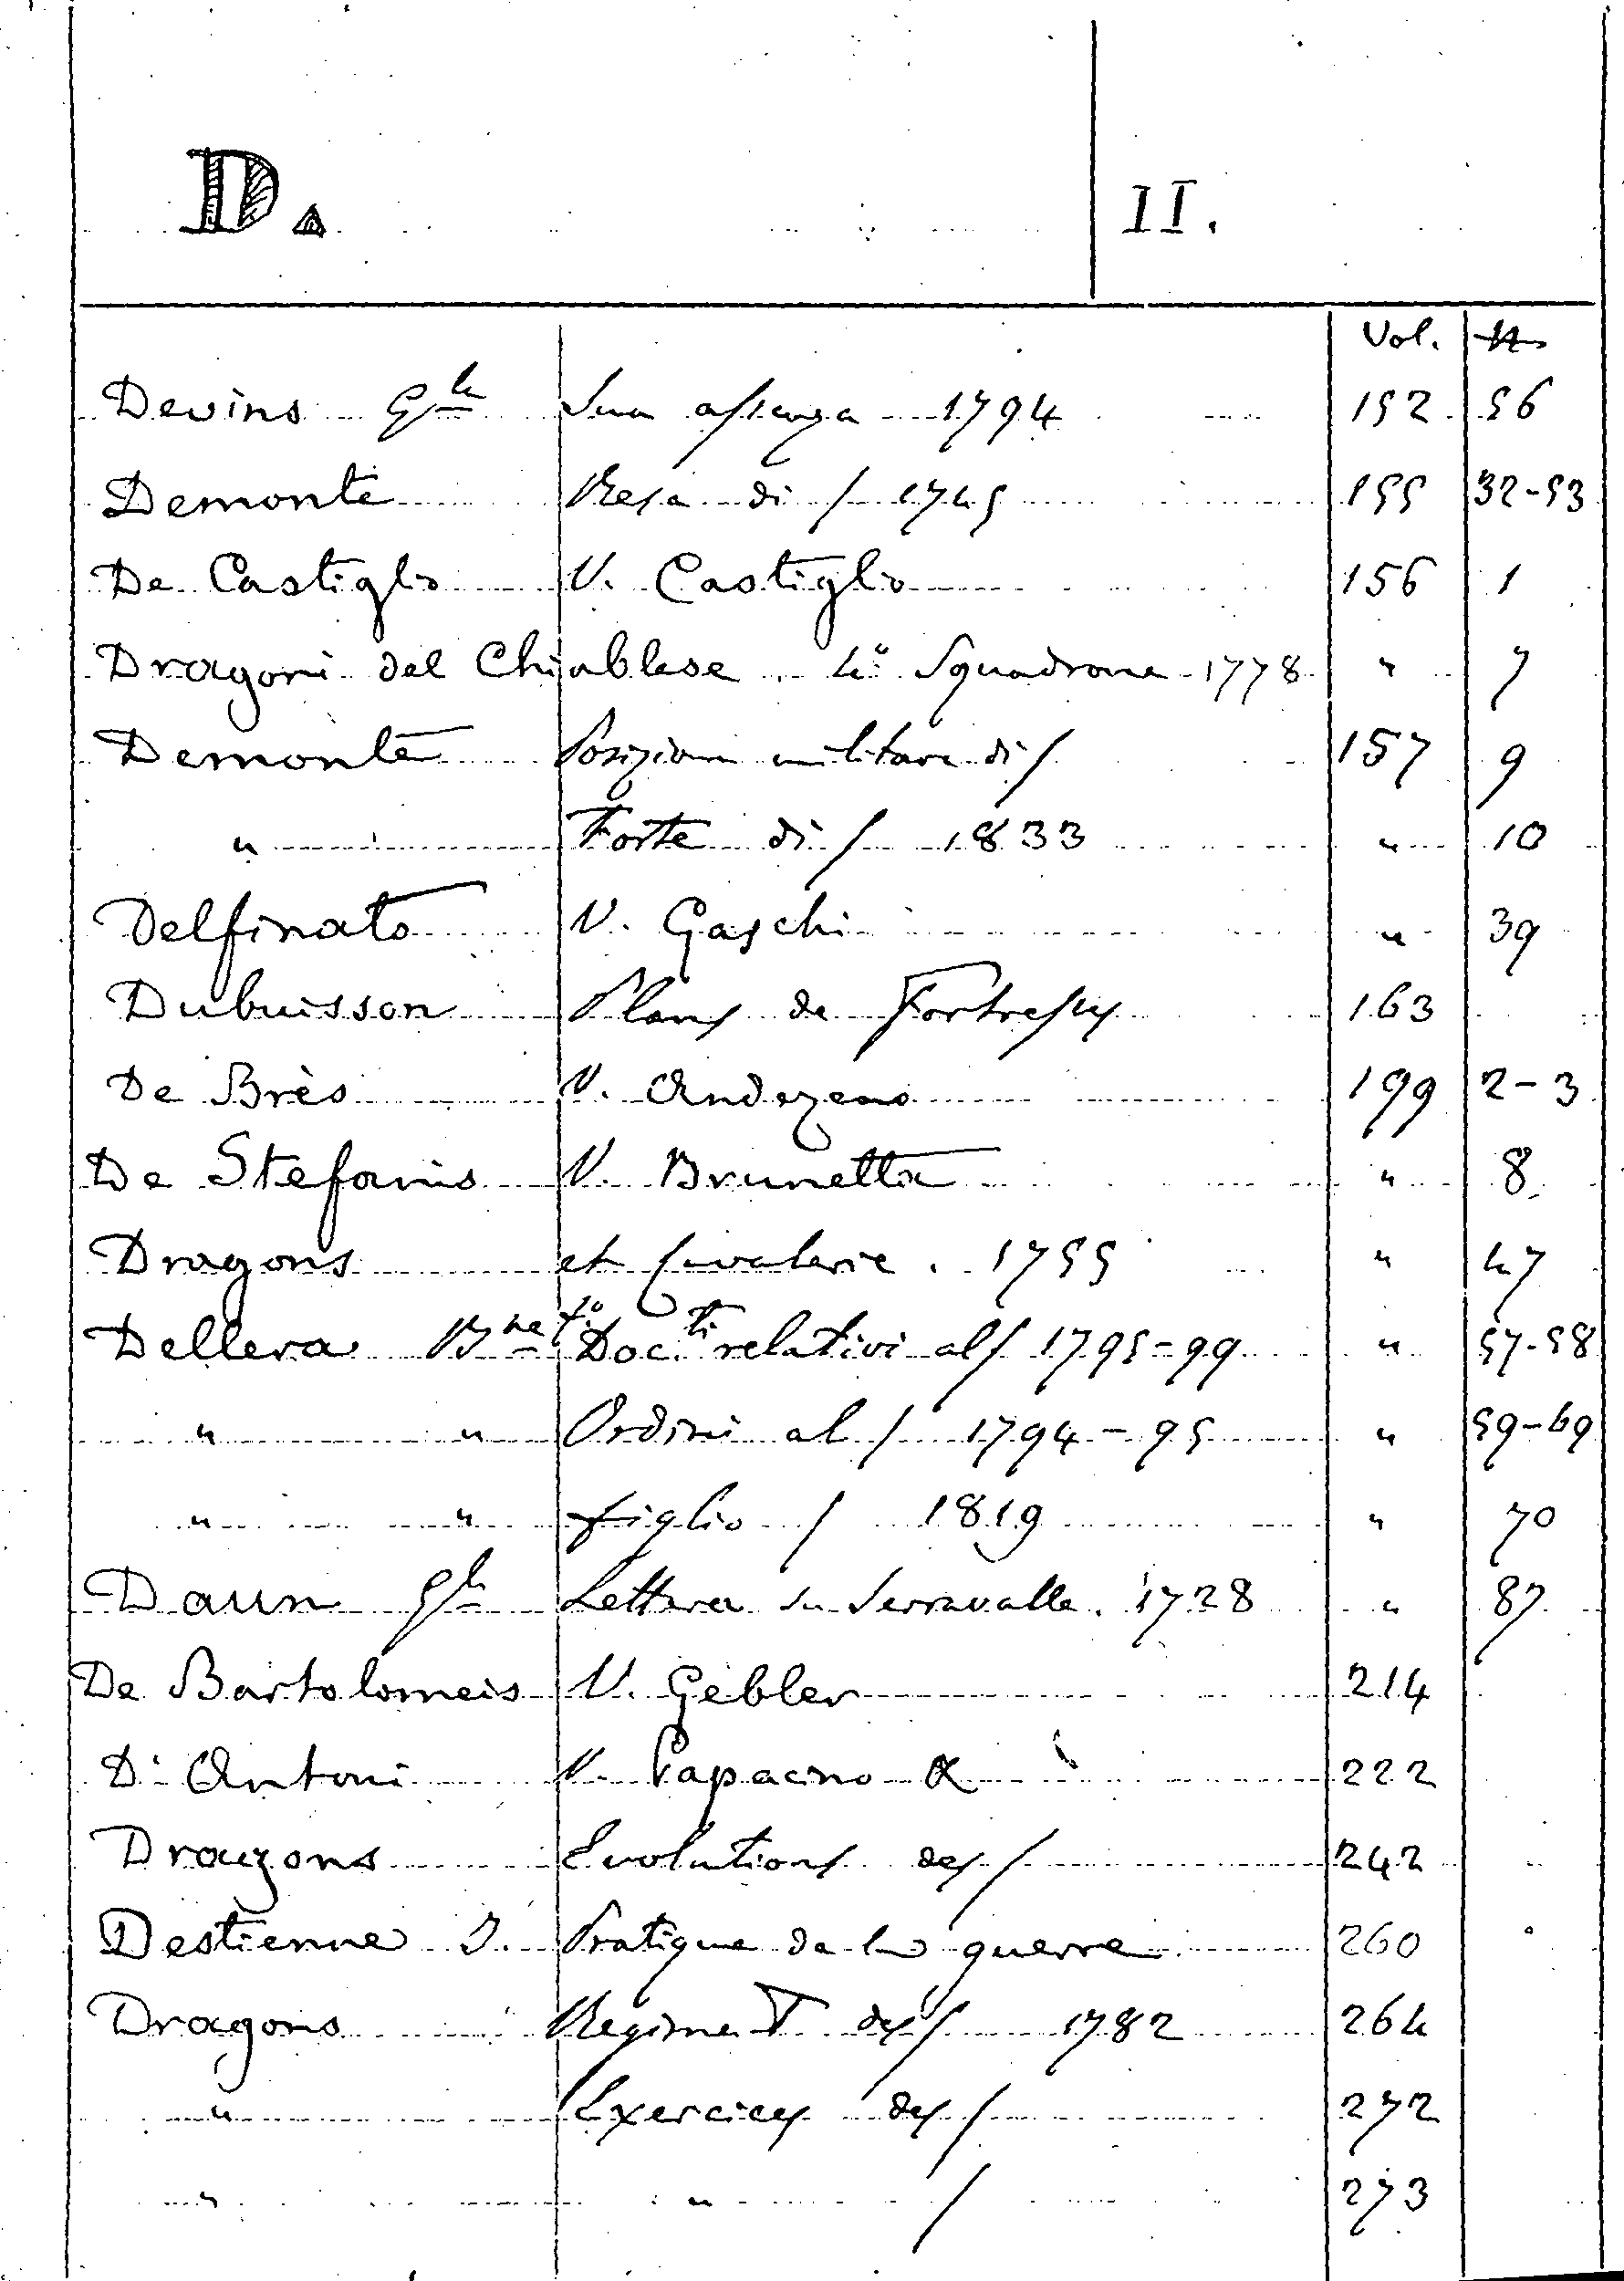 D. II.
Vol. N
Devins Gle Sua assenza 1794 152 56
Demonte Resa di / 1745 155 32-53
De Castiglio V. Castiglio 156 1
Dragoni del Chiablese. 4° Squadrone 1778 " 7
Demonte Posizione militare di / 157 9
" Forte di / 1833 " 10
Delfinato V. Gaschi " 39
Dubuisson Plans de Fortresses 163
De Brès V. Andezeno 199 2-3
De Stefanis V. Brunetta " 8
Dragons et Cavalerie. 1755 " 47
Dellera Bne Docti relativi al / 1795-99 " 57-58
" " Ordini al / 1794-95 " 59-69
" " figlio / 1819 " 70
Daun Gle Lettera su Serravalle. 1728 " 87
De Bartolomeis V. Gebler 214
D'Antoni V. Papacino 222
Dragons Evolutions des / 242
Destienne J. Pratique de la guerre 260
Dragons Regiment des / 1782 264
" Exercices des / 272
" " / 273